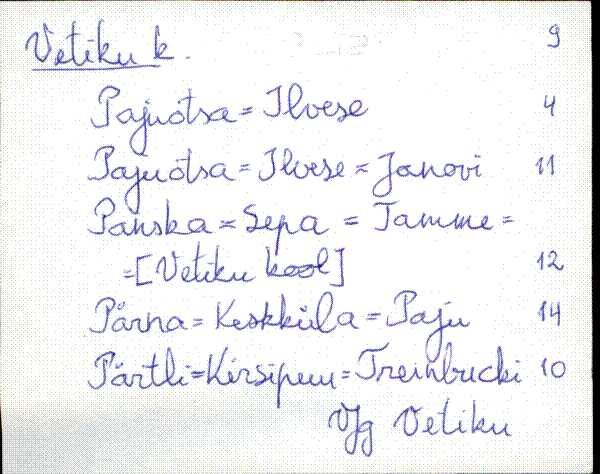 Vetiku k. 9
Pajuotsa = Ilvese 4
Pajuotsa = Ilvese = Janovi 11
Panska = Sepa = Tamme =
=[Vetiku kool] 12
Pärna = Keskküla = Paju 14
Pärtli = Kirsipuu = Treinbucki 10
Vjg Vetiku